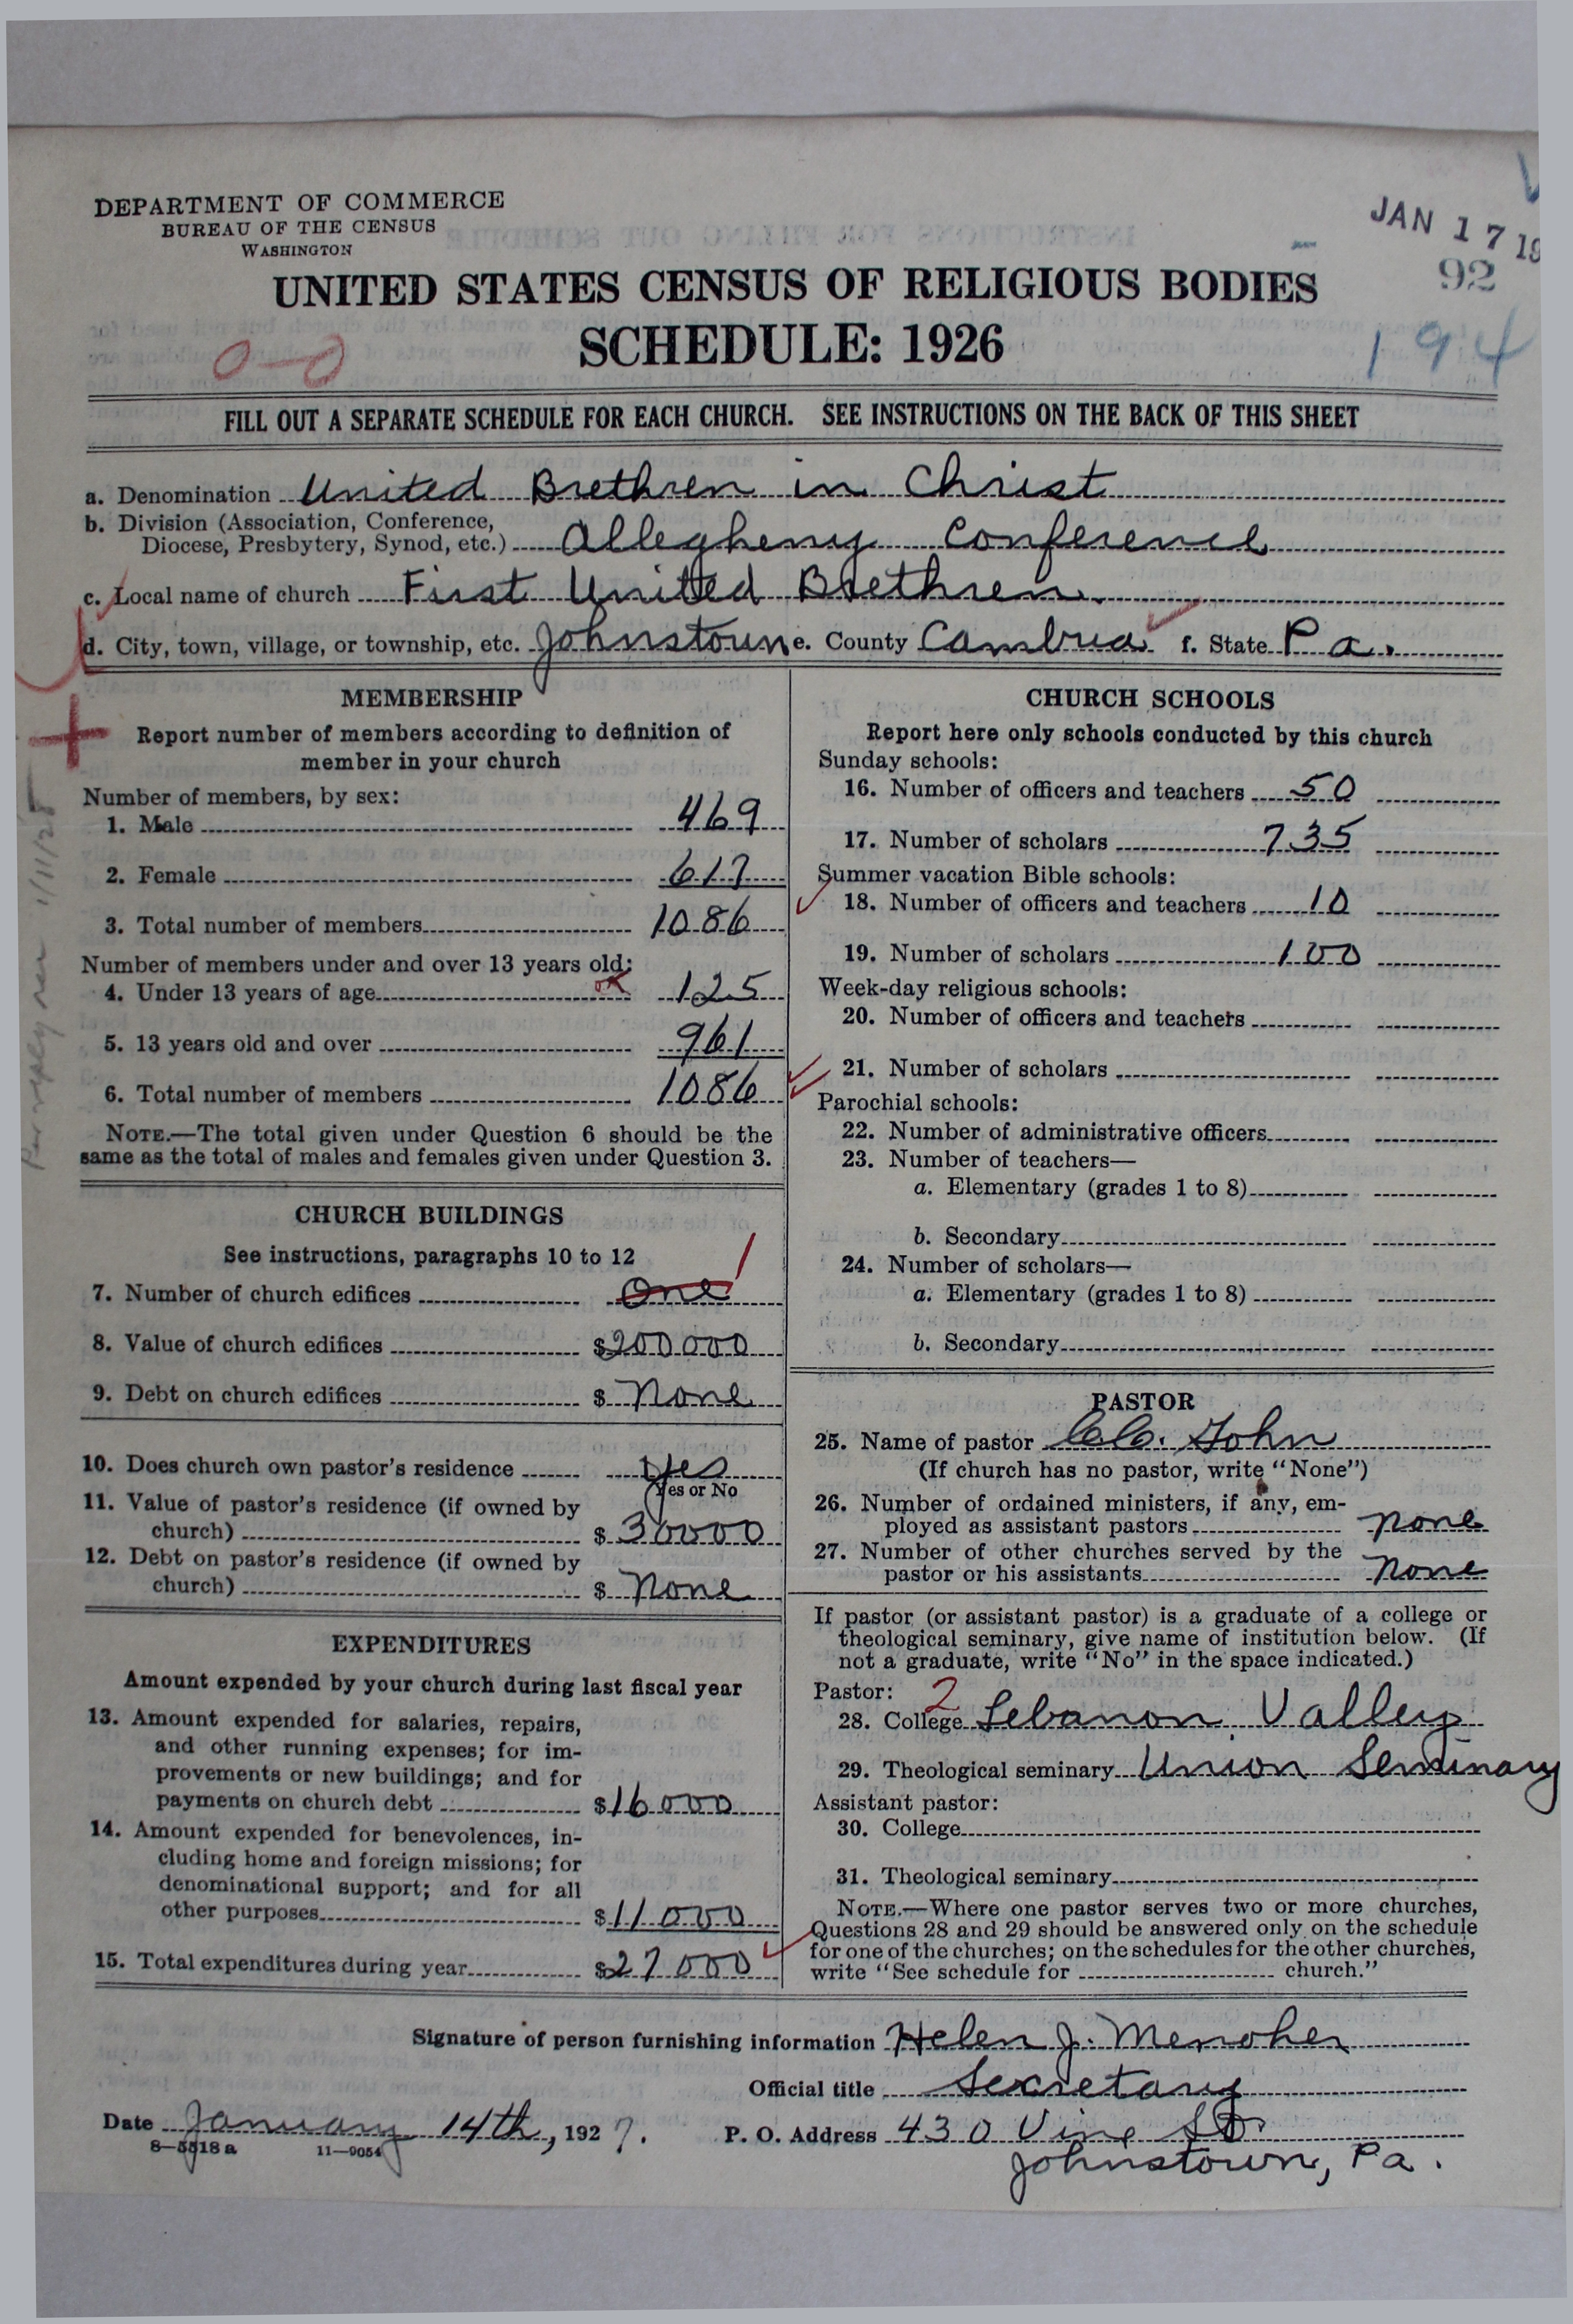 DEPARTMENT OF COMMERCE
BUREAU OF THE CENSUS
WASHINGTON
JAN 17 19
92
194
UNITED STATES CENSUS OF RELIGIOUS BODIES
SCHEDULE: 1926
0-0
FILL OUT A SEPARATE SCHEDULE FOR EACH CHURCH. SEE INSTRUCTIONS ON THE BACK OF THIS SHEET
a. Denomination United Brethren in Christ
b. Division (Association, Conference,
Diocese, Presbytery, Synod, etc.) Allegheny Conference
c. Local name of church First United Brethren.
d. City, town, village, or township, etc. Johnstown e. County Cambria f. State Pa.
MEMBERSHIP
Report number of members according to definition of
member in your church
Number of members, by sex:
1. Male 469
2. Female 617
3. Total number of members 1086
Number of members under and over 13 years old:
4. Under 13 years of age OK 125
5. 13 years old and over 961
6. Total number of members 1086
NOTE.—The total given under Question 6 should be the
same as the total of males and females given under Question 3.
CHURCH BUILDINGS
See instructions, paragraphs 10 to 12
7. Number of church edifices One 1
8. Value of church edifices $200000
9. Debt on church edifices $ None
10. Does church own pastor's residence Yes
Yes or No
11. Value of pastor's residence (if owned by
church) $ 30000
12. Debt on pastor's residence (if owned by
church) $ None
EXPENDITURES
Amount expended by your church during last fiscal year
13. Amount expended for salaries, repairs,
and other running expenses; for im-
provements or new buildings; and for
payments on church debt $16000
14. Amount expended for benevolences, in-
cluding home and foreign missions; for
denominational support; and for all
other purposes $11000
15. Total expenditures during year $27000
CHURCH SCHOOLS
Report here only schools conducted by this church
Sunday schools:
16. Number of officers and teachers 50
17. Number of scholars 735
Summer vacation Bible schools:
18. Number of officers and teachers 10
19. Number of scholars 100
Week-day religious schools:
20. Number of officers and teachers
21. Number of scholars
Parochial schools:
22. Number of administrative officers
23. Number of teachers—
a. Elementary (grades 1 to 8)
b. Secondary
24. Number of scholars—
a. Elementary (grades 1 to 8)
b. Secondary
PASTOR
25. Name of pastor John
(If church has no pastor, write "None")
26. Number of ordained ministers, if any, em-
ployed as assistant pastors none
27. Number of other churches served by the
pastor or his assistants none
If pastor (or assistant pastor) is a graduate of a college or
theological seminary, give name of institution below. (If
not a graduate, write "No" in the space indicated.)
Pastor: 2
28. College Lebanon Valley
29. Theological seminary Union Seminary
Assistant pastor:
30. College
31. Theological seminary
NOTE.—Where one pastor serves two or more churches,
Questions 28 and 29 should be answered only on the schedule
for one of the churches; on the schedules for the other churches,
write "See schedule for church."
Signature of person furnishing information Helen J. Menoher
Official title Secretary
Date January 14th, 1927. P. O. Address 430 Vine St
8—5518a 11—9054
Johnstown, Pa.